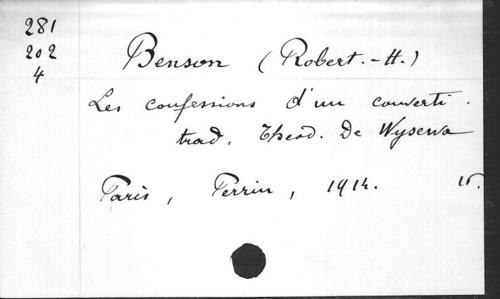 281
202
4
Benson (Robert.-H.)
Les confessions d'un converti.
trad. Théod. De Wyzewa
Paris, Perrin, 1914. in.